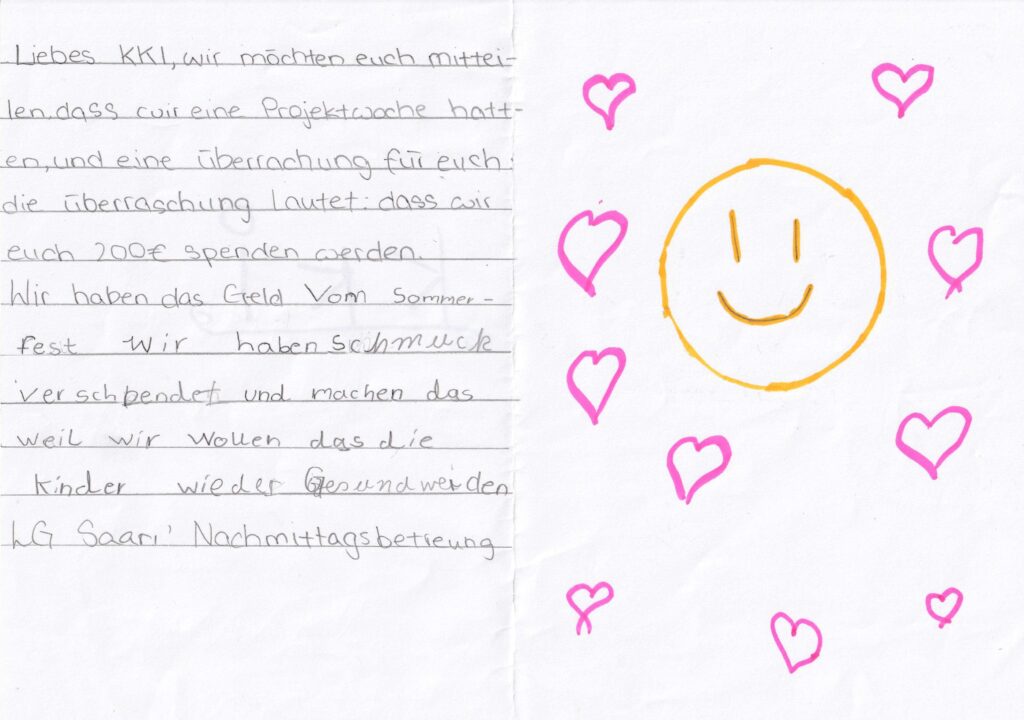 Liebes KKI, wir möchten euch mittei-
len, dass wir eine Projektwoche hatt-
en, und eine überrachung für euch:
die überraschung lautet: dass wir
euch 200€ spenden werden.
Wir haben das Geld Vom Sommer-
fest Wir haben Schmuck
verschpendet und machen das
weil wir wollen das die
kinder wieder Gesund werden
LG Saari' Nachmittagsbetreung